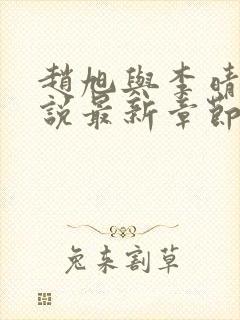 趙旭與李晴
說最新章節
兔來割草